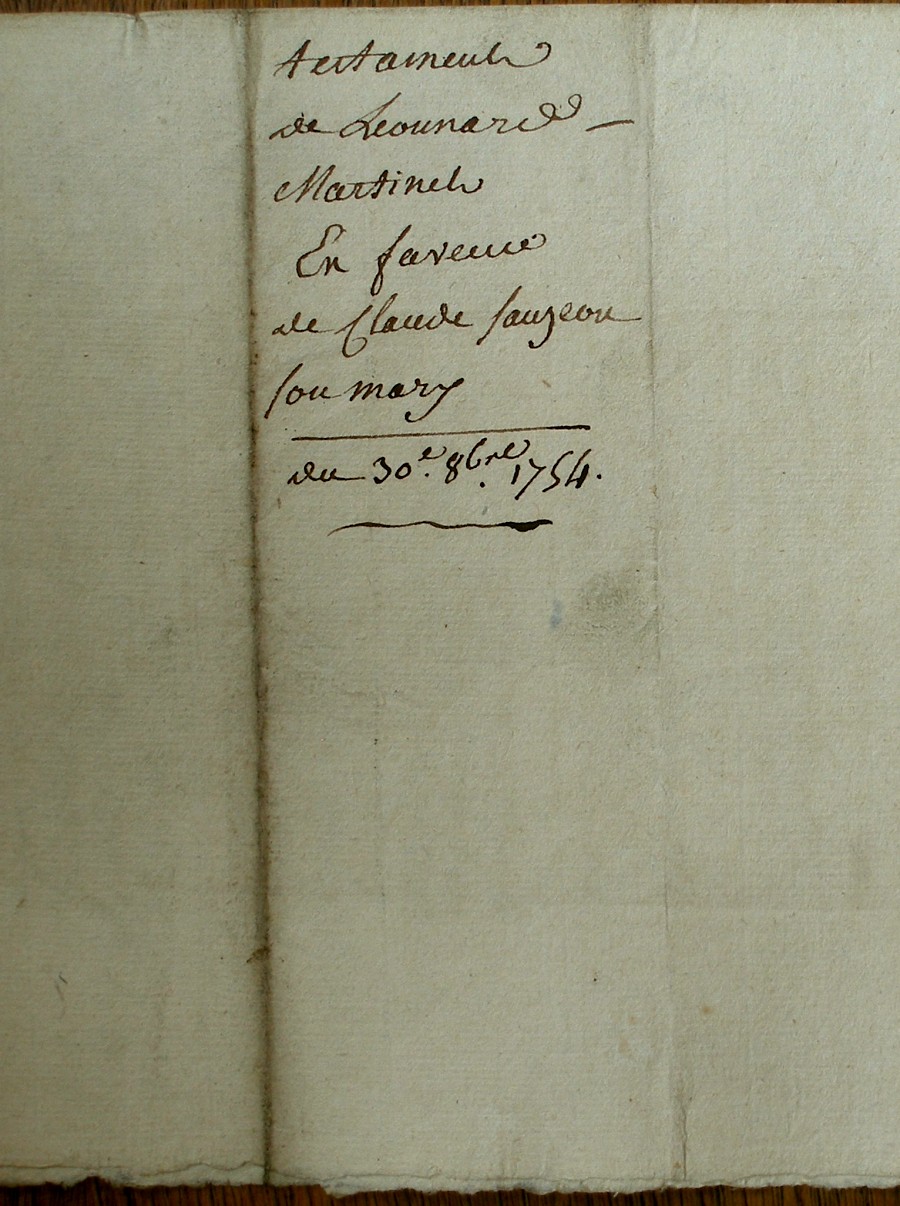 testament
de Leonnarde
Martinet
En faveur
de Claude sauzeon
son mary
du 30e. 8bre. 1754.